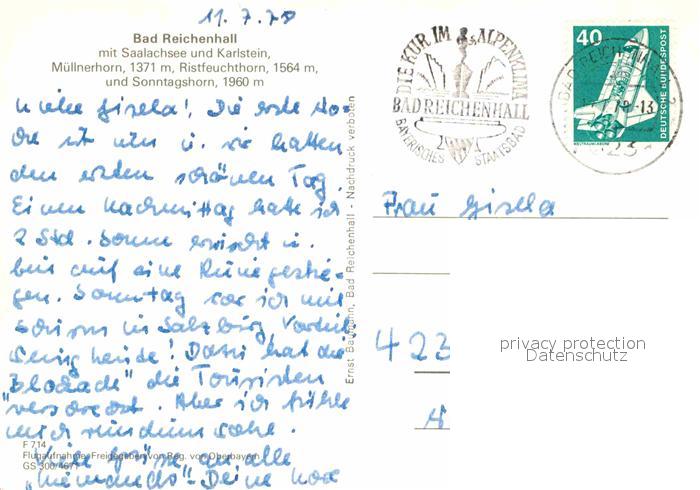 11.7.78
Bad Reichenhall
mit Saalachsee und Karlstein,
Müllnerhorn, 1371 m, Ristfeuchthorn, 1564 m,
und Sonntagshorn, 1960 m
Liebe Gisela! Die erste Wo-
che ist um u. wir hatten
den ersten schönen Tag.
Einen Nachmittag hatte ich
2 Std. Sonne erwischt u.
bin auf eine Ruine gestie-
gen. Sonntag war ich mit
Schirm in Salzburg
wenig heute! Dafür hat die
"Blockade" die Touristen
"versorgt". Aber ich fühle
mich rundum wohl.
Viele Grüße an alle
Deine
F 714
Flugaufnahme Freigegeben von Reg. von Oberbayern
GS 300/4671
Ernst Baumann, Bad Reichenhall - Nachdruck verboten
DIE KUR IM ALPENKLIMA
BAD REICHENHALL
BAYERISCHES STAATSBAD
40
DEUTSCHE BUNDESPOST
WELTRAUMLABOR
BAD REICHENHALL
78-13
823
Frau Gisela
423
privacy protection
Datenschutz